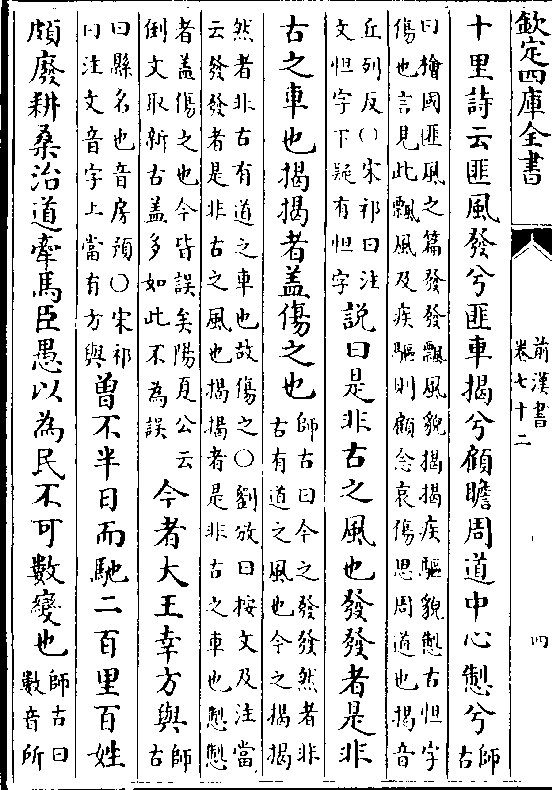 欽定四庫全書
前漢書
卷七十二
四
十里詩云匪風發兮匪車揭兮顧瞻周道中心㤠兮師古
曰檜國匪風之篇發發飄風貌揭揭疾驅貌㤠古怛字
傷也言見此飄風及疾驅則顧念哀傷思周道也揭音
丘列反○宋祁曰注
文怛字下疑有怛字
說曰是非古之風也發發者是非
古之車也揭揭者盖傷之也
師古曰今之發發然者非
古有道之風也今之揭揭
然者非古有道之車也故傷之○劉攽曰按文及注當
云發發者是非古之風也揭揭者是非古之車也㤠㤠
者盖傷之也今皆誤矣陽夏公云
倒文取新古盖多如此不為誤
今者大王幸方與師古
曰縣名也音房預○宋祁
曰注文音字上當有方與
曾不半日而馳二百里百姓
頗廢耕桑治道牽馬臣愚以為民不可數變也
師古曰
數音所